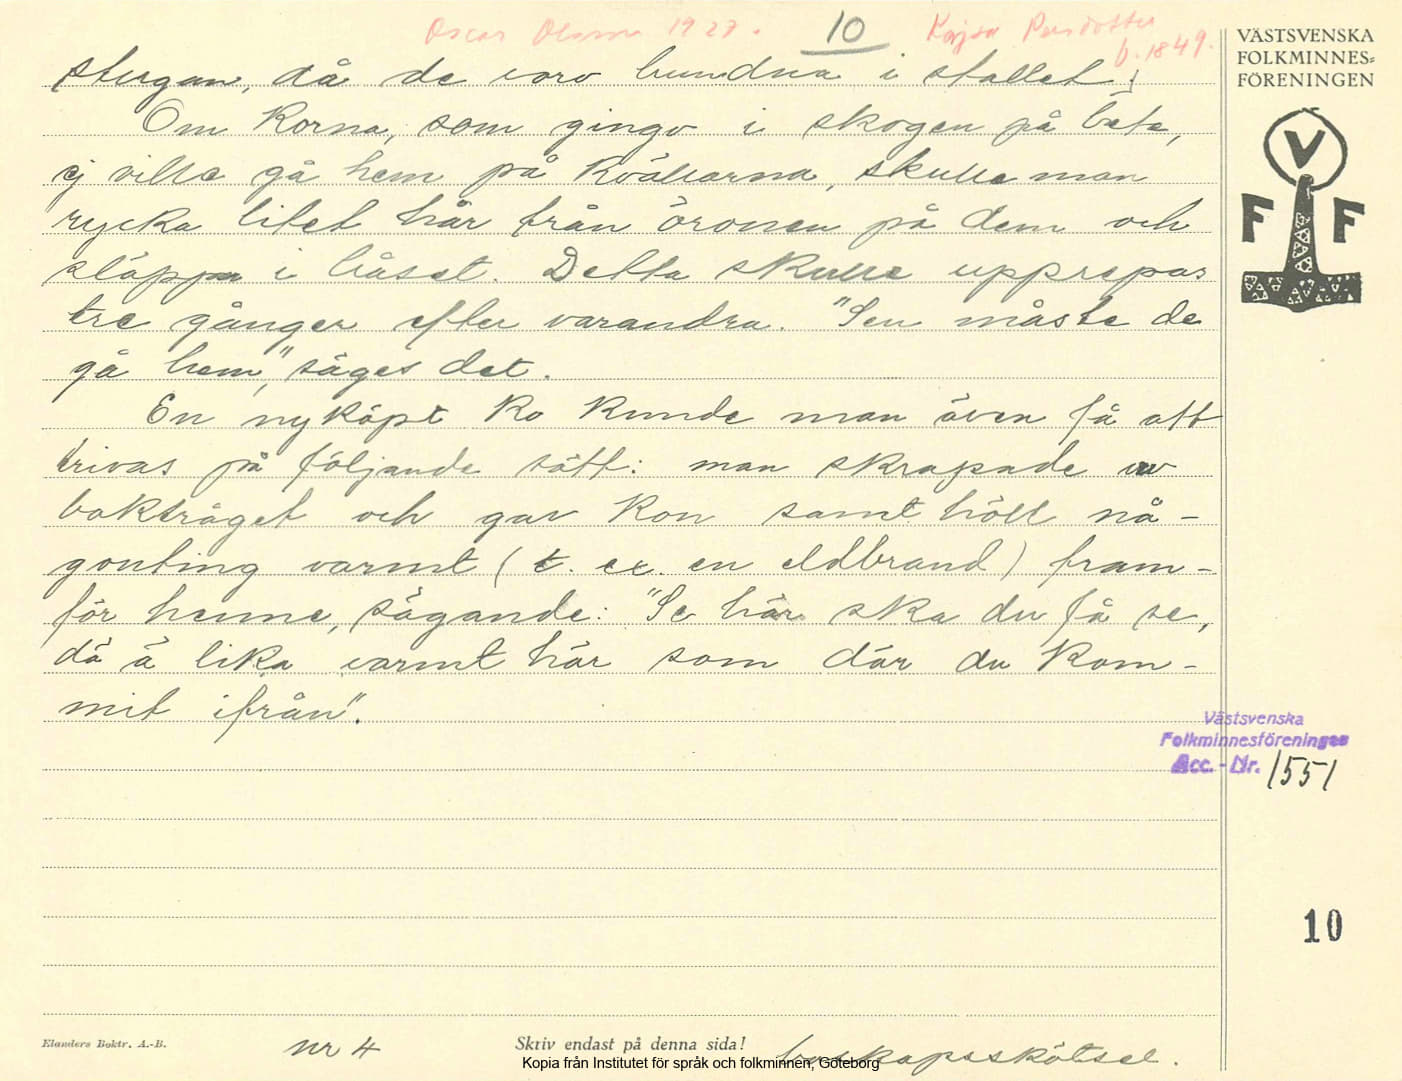 Oscar Olsson 1927.
10
Kajsa Persdotter
f. 1849.
VÄSTSVENSKA
FOLKMINNES=
FÖRENINGEN
V
F F
stugan, då de voro bundna i stallet.
Om korna, som gingo i skogen på bete,
ej ville gå hem på kvällarna, skulle man
rycka litet hår från öronen på dem och
släppa i båset. Detta skulle upprepas
tre gånger efter varandra. "Sen måste de
gå hem," säges det.
En nyköpt ko kunde man även få att
trivas på följande sätt: man skrapade av
baktråget och gav kon samt höll nå-
gonting varmt (t. ex. en eldbrand) fram-
för henne, sägande: "Se här ska du få se,
dä ä lika varmt här som där du kom-
mit ifrån".
Västsvenska
Folkminnesföreningen
Acc. - Nr. 1551
10
Elanders Boktr. A.-B.
nr 4
Skriv endast på denna sida!
boskapsskötsel.
Kopia från Institutet för språk och folkminnen, Göteborg